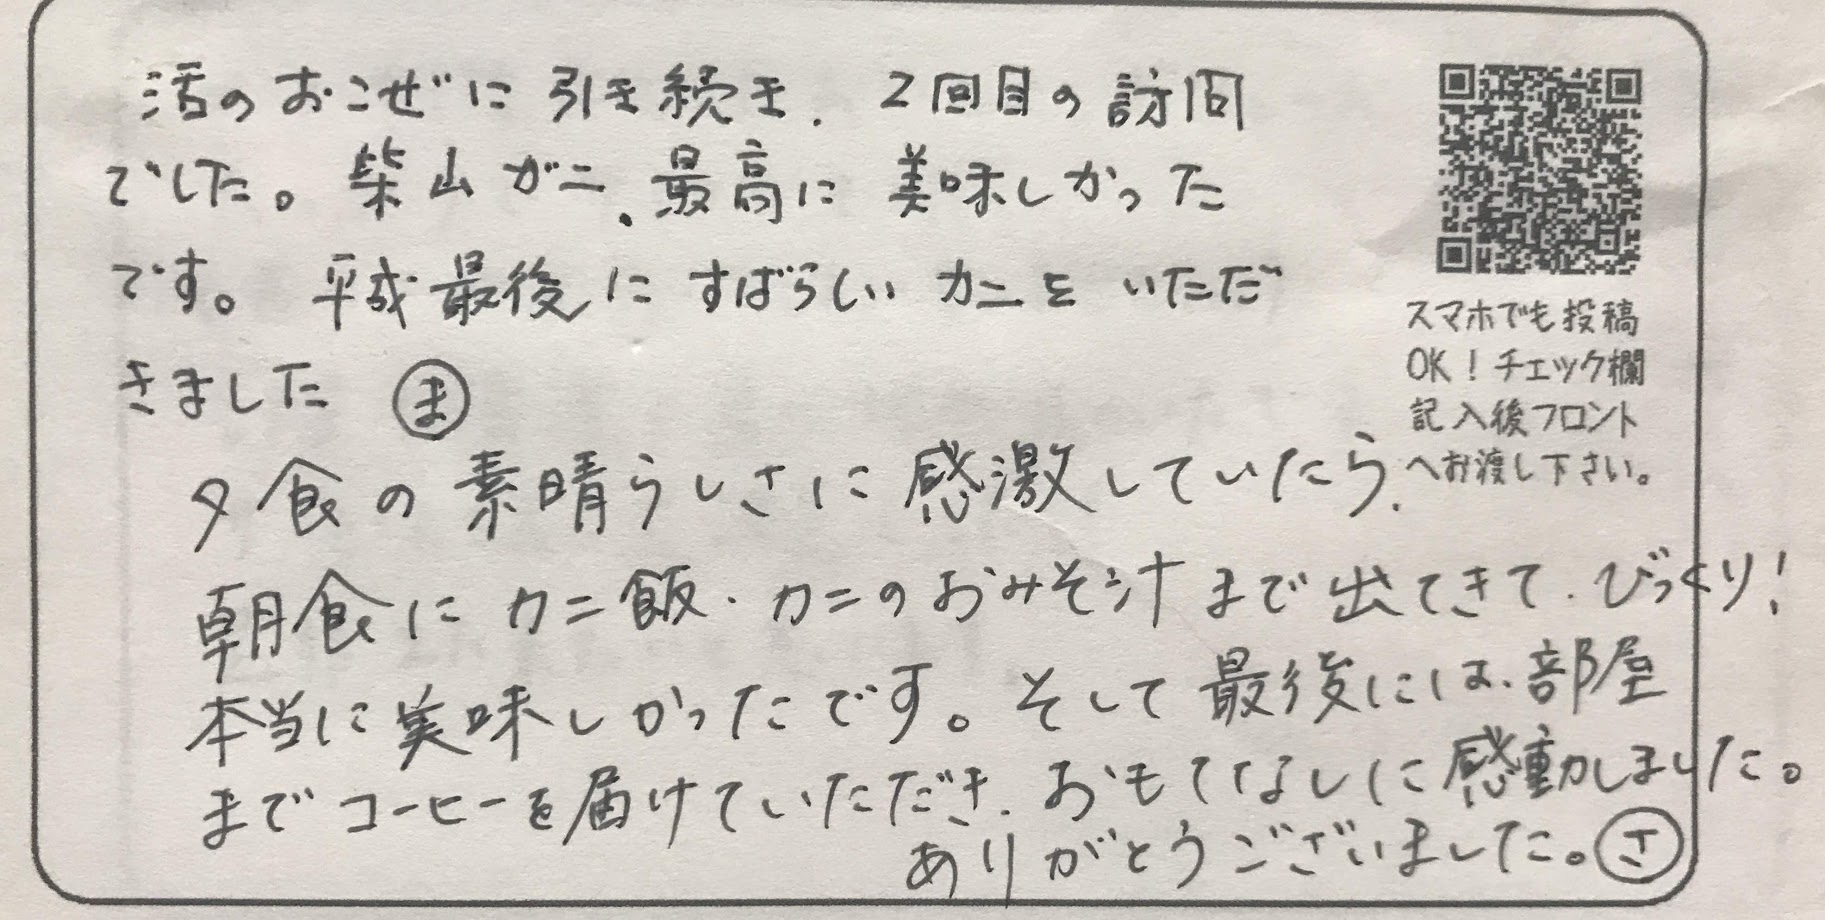 活のおこぜに引き続き、2回目の訪問
でした。柴山ガニ、最高に美味しかった
です。平成最後にすばらしいカニをいただ
きました ま
夕食の素晴らしさに感激していたら、
朝食にカニ飯、カニのおみそ汁まで出てきて、びっくり!
本当に美味しかったです。そして最後には、部屋
までコーヒーを届けていただき、おもてなしに感動しました。
ありがとうございました。さ
スマホでも投稿
OK!チェック欄
記入後フロント
へお渡し下さい。